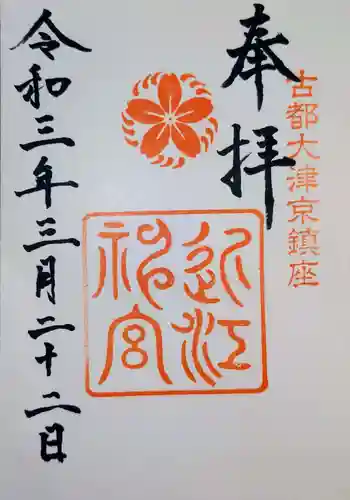 奉拝
古都大津京鎮座
近江
神宮
令和三年三月二十二日